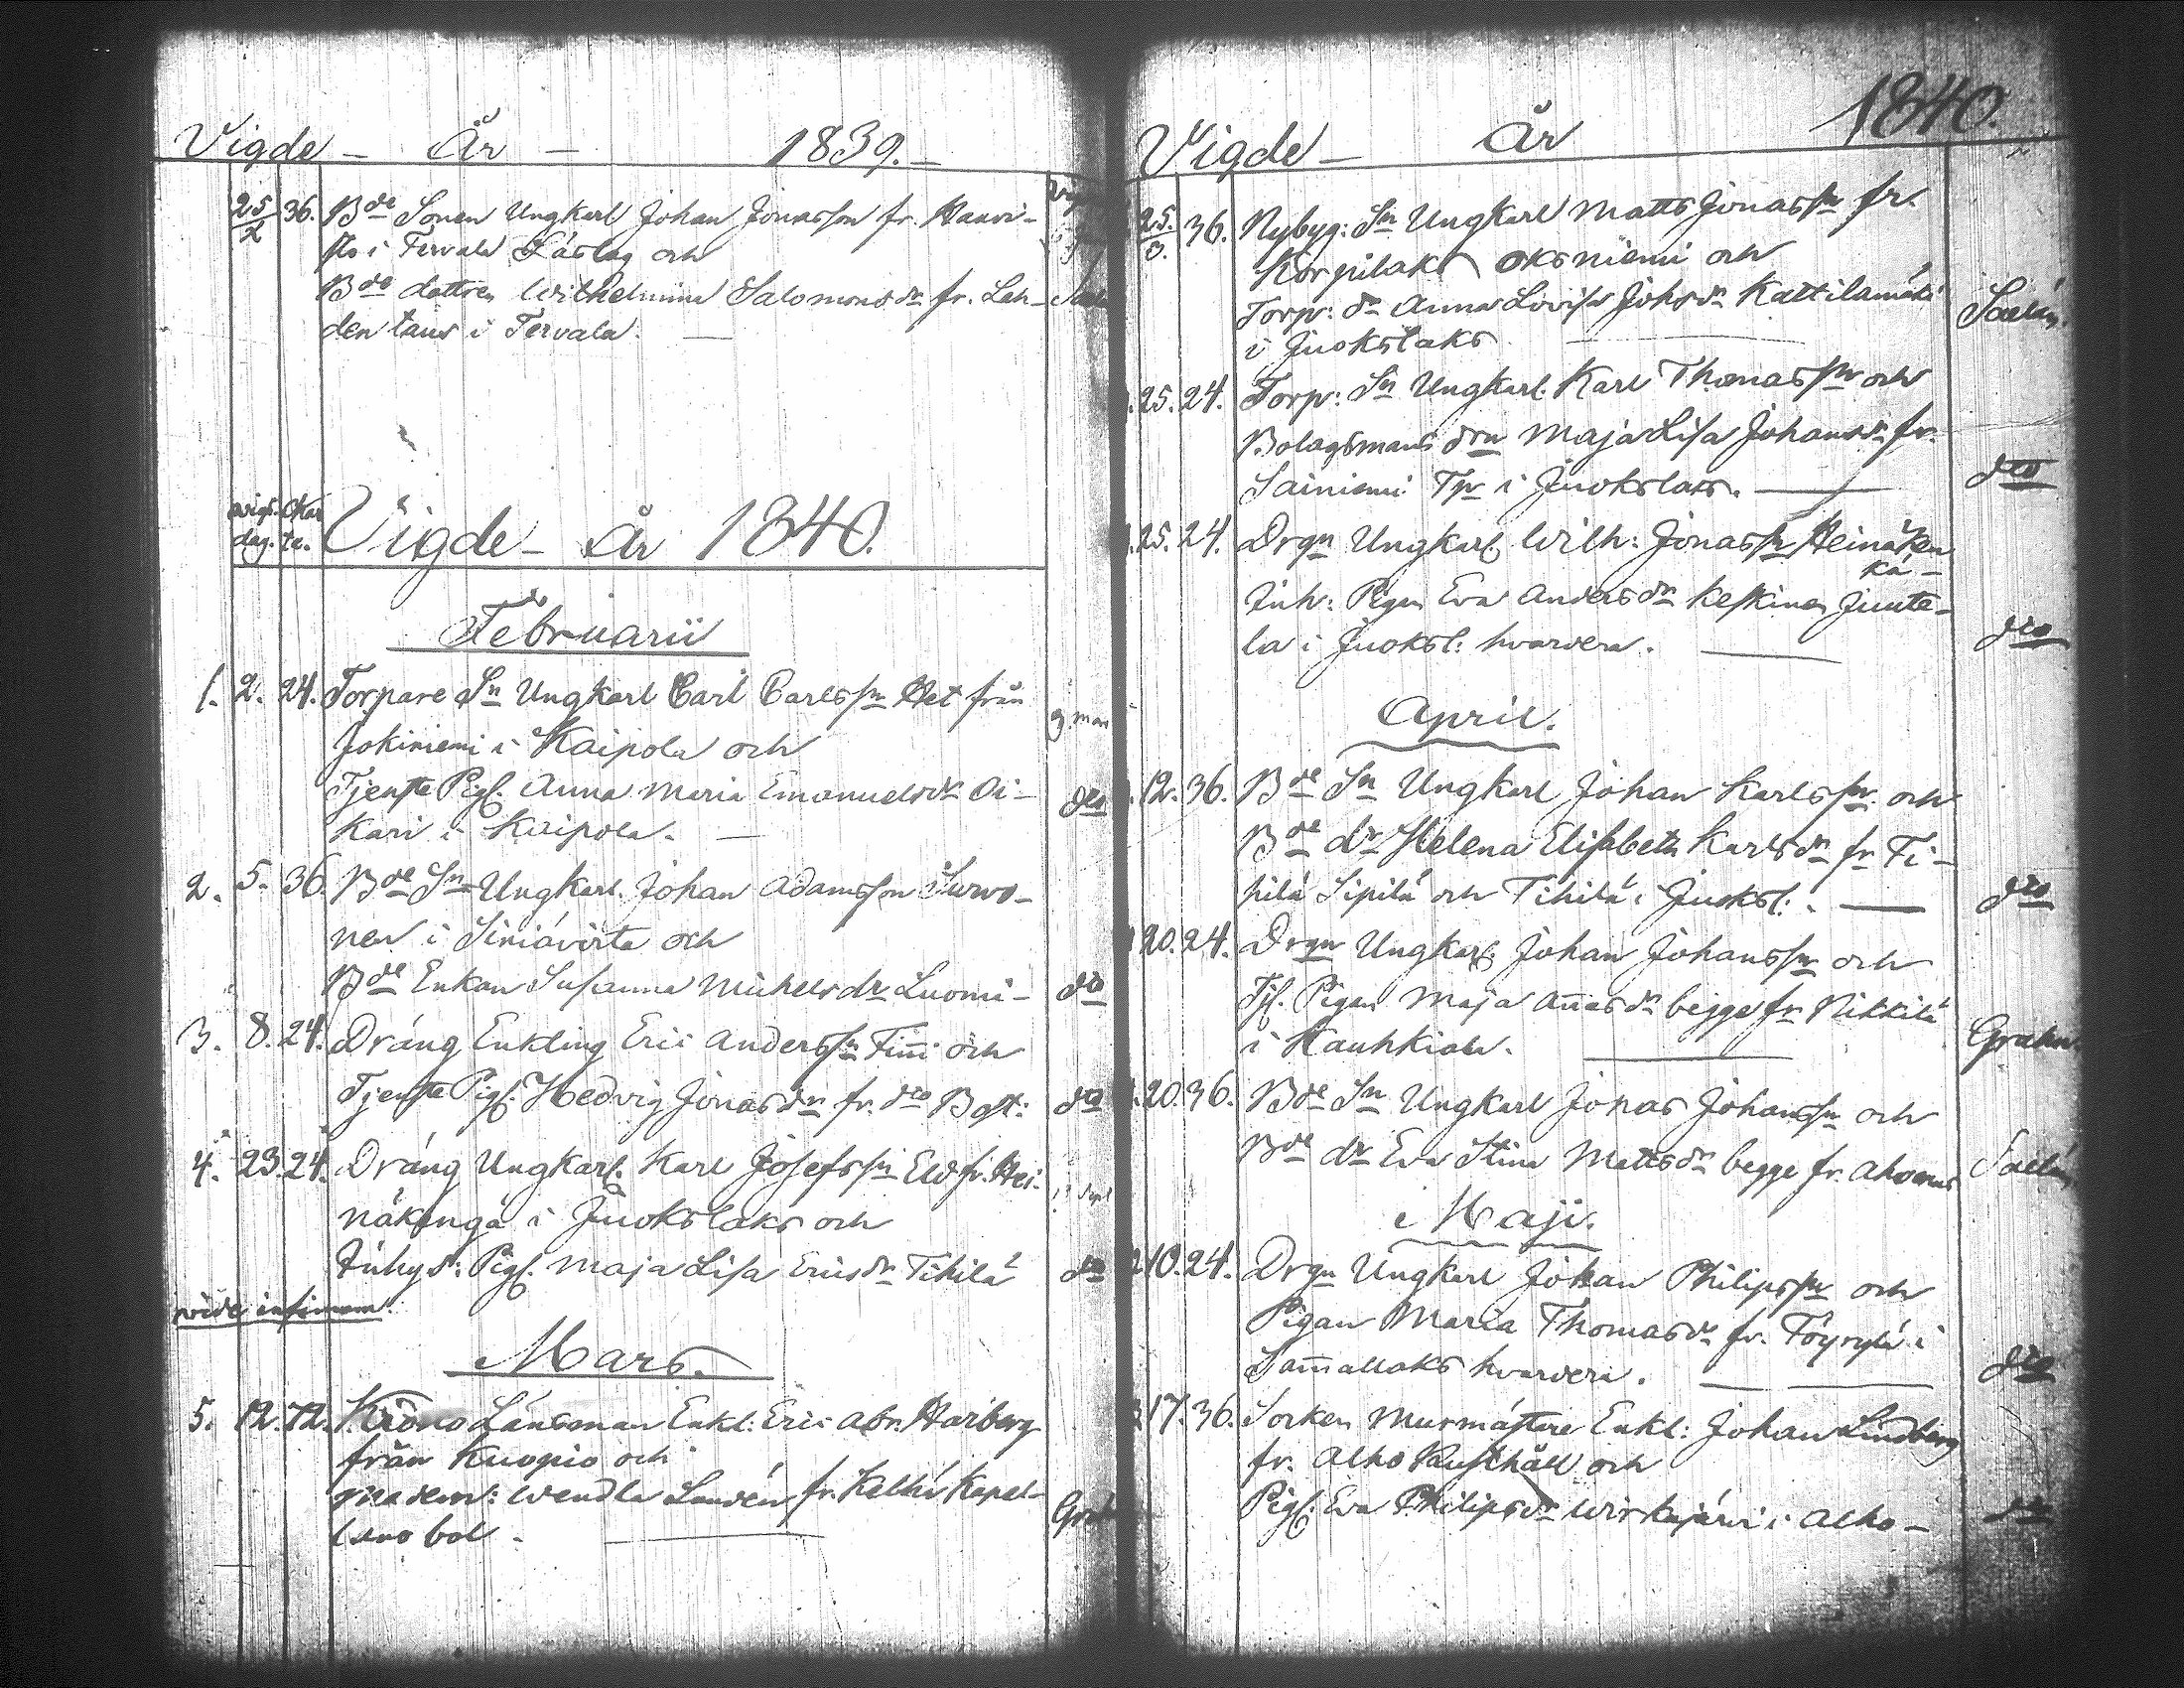 Vigde - År - 1839. -
25/2 36. Bde Sonen Ungkarl Johan Jonasson fr. Haavi-
sto i Tervala Låslag och
Bde dottren Wilhelmina Salomonsdr fr. Lah-
dentaus i Tervala. —
vigs. Kar
dag. ta. Vigde - år 1840.
Februarii
1. 2. 24. Torpare Sn Ungkarl Carl Carlssn Het från
Jokiniemi i Kaipola och
Tjenste Pig. Anna Maria Emanuelsdr Oi-
kari i Kaipola. — dto
2. 5. 36. Bde Sn Ungkarl Johan Adamsson Surwo-
nen i
och
Bde Enkan Susanna Michelsdr Luomi- dto
3. 8. 24. Dräng Enkling Eric Anderssn Finni och
Tjenste Pig. Hedvig Jonasdr fr. dto Bost: dto
4. 23. 24. Dräng Ungkarl. Karl Josefssn Elo fr. Hei-
näkangä i Juokslaks och
Inhys: Pig. Maja Lisa Ericsdr Tihilä dto
vide infimam.
Mars.
5. 12. 72. Krono Länsman Enkl: Eric Abr. Harberg
från Kuopio och
madem: Wendla Landén fr. Kelhi Kapel-
lans bol. —
Vigde - År 1840.
25./3. 36. Nybyg: Sn Ungkarl Matts Jonassn fr.
Korpilaks Oksniemi och
Torp: dr Anna Lovisa Johsdr Kattilamäki
i Juokslaks — Saelán.
25. 24. Torp: Sn Ungkarl. Karl Thomassn och
Bolagsmans drn Maja Lisa Johansdr fr.
Sainiemi Tp i Juokslaks. — dto
25. 24. Drgn Ungkarl Wilh: Jonassn Heinäken
kä-
Inh: Pigan Eva Andersdr Keskinen Juute-
la i Juoksl: hvardera. — dto
April.
12. 36. Bde Sn Ungkarl Johan Karlssn och
Bde dr Helena Elisabeth Karlsdr fr Ti-
hilä Sipilä och Tihilä i Juoksl: — dto
20. 24. Drgn Ungkarl. Johan Johanssn och
Tj. Pigan Maja Annasdr begge fr Nikkilä
i Hauhkiala. — Grahn.
20. 36. Bde Sn Ungkarl Jonas Johanssn och
Bde dr Eva Stina Mattsdr begge fr. Ahvenus Saelán
Maji.
10. 24. Drgn Ungkarl Johan Philipssn och
Pigan Maria Thomasdr fr. Töyrylä i
Sammallaks hvardera. — dto
17. 36. Socken Murmästare Enkl: Johan Lindberg
fr. Alho Rusthåll och
Pig: Eva Philipsdr Wirkajärvi i Alho - dto